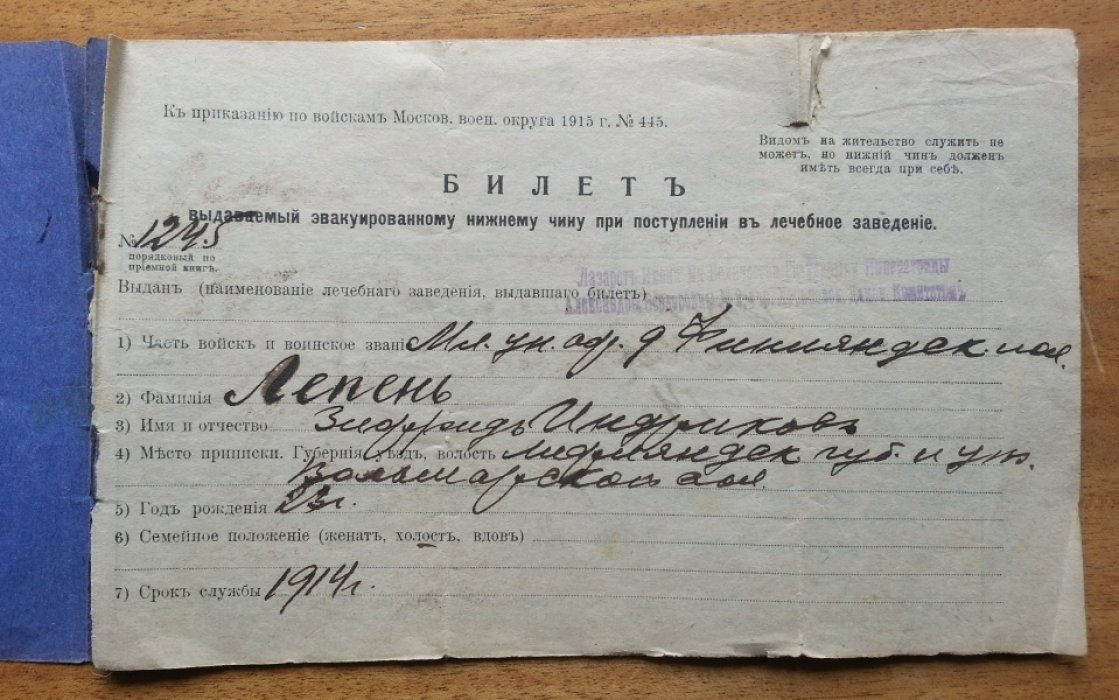 Къ приказанію по войскамъ Москов. воен. округа 1915 г. № 445.
Видомъ на жительство служить не
можетъ, но нижній чинъ долженъ
имѣть всегда при себѣ.
БИЛЕТЪ
выдаваемый эвакуированному нижнему чину при поступленіи въ лечебное заведеніе.
№ 1245
порядковый по
пріемной книгѣ.
Выданъ (наименованіе лечебнаго заведенія, выдавшаго билетъ)
Лазаретъ Ея Величества Государыни Императрицы
1) Часть войскъ и воинское званіе Мл. ун. оф. Финляндск. пол.
2) Фамилія Лепень
3) Имя и отчество Зигфридъ Индриковъ
4) Мѣсто приписки. Губернія, уѣздъ, волость Лифляндск губ. и уѣз.
Вольмарской вол
5) Годъ рожденія 23 г.
6) Семейное положеніе (женатъ, холостъ, вдовъ)
7) Срокъ службы 1914 г.